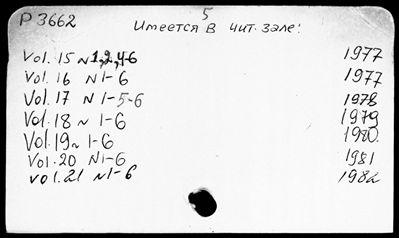 Р 3662
5
Имеется в чит. зале:
Vol. 15 N 1,2,4-6 1977
Vol. 16 N 1-6 1977
Vol. 17 N 1-5-6 1978
Vol. 18 N 1-6 1979
Vol. 19 N 1-6 1980
Vol. 20 N 1-6 1981
Vol. 21 N 1-6 1982